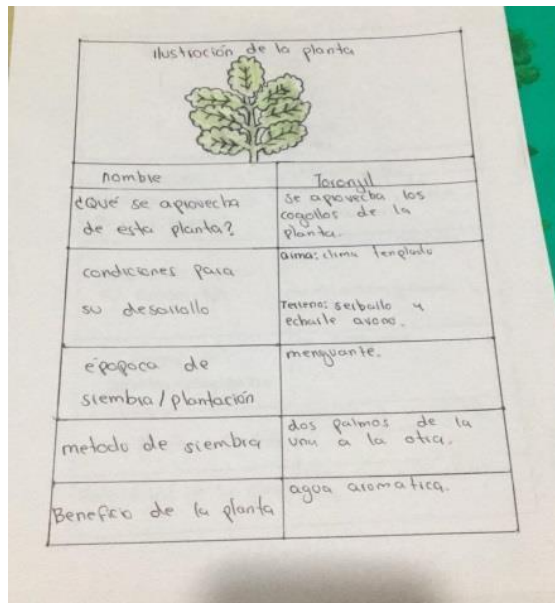 ilustración de la planta
nombre
Toronjil
¿Qué se aprovecha
de esta planta?
se aprovecha los
cogollos de la
planta.
condiciones para
su desarrollo
clima: clima templado
Terreno: serballo y
echarle avono.
épopoca de
siembra/plantación
menguante.
metodo de siembra
dos palmos de la
una a la otra.
Beneficio de la planta
agua aromatica.